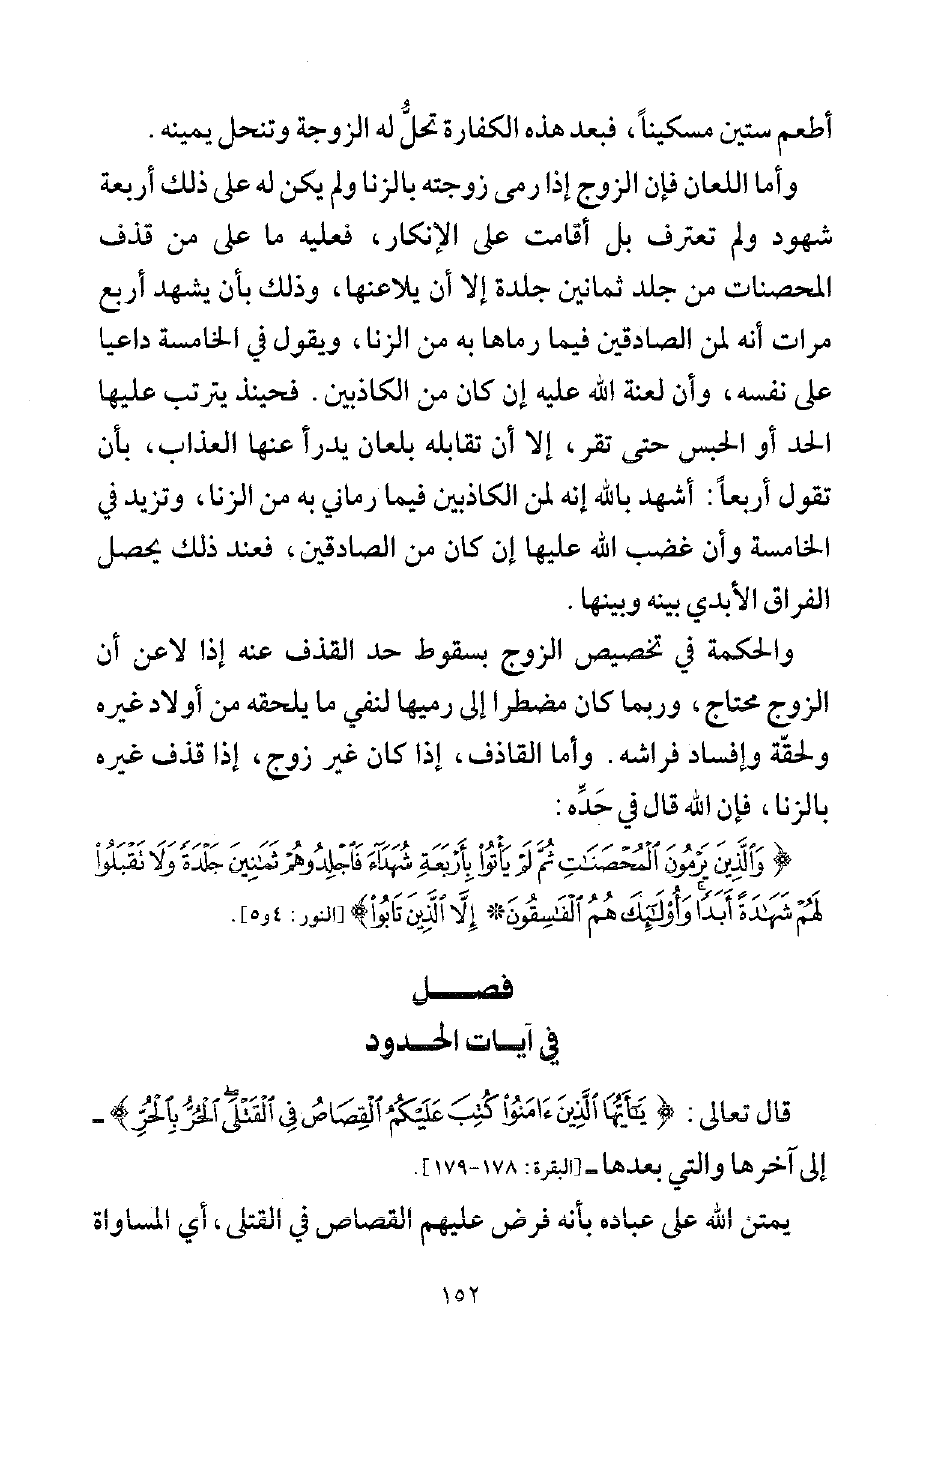 أطعم ستين مسكيناً، فبعد هذه الكفارة تحلُّ له الزوجة وتنحل يمينه.
وأما اللعان فإن الزوج إذا رمى زوجته بالزنا ولم يكن له على ذلك أربعة
شهود ولم تعترف بل أقامت على الإنكار، فعليه ما على من قذف
المحصنات من جلد ثمانين جلدة إلا أن يلاعنها، وذلك بأن يشهد أربع
مرات أنه لمن الصادقين فيما رماها به من الزنا، ويقول في الخامسة داعيا
على نفسه، وأن لعنة الله عليه إن كان من الكاذبين. فحينذ يترتب عليها
الحد أو الحبس حتى تقر، إلا أن تقابله بلعان يدرأ عنها العذاب، بأن
تقول أربعاً: أشهد بالله إنه لمن الكاذبين فيما رماني به من الزنا، وتزيد في
الخامسة وأن غضب الله عليها إن كان من الصادقين، فعند ذلك يحصل
الفراق الأبدي بينه وبينها.
والحكمة في تخصيص الزوج بسقوط حد القذف عنه إذا لاعن أن
الزوج محتاج، وربما كان مضطرا إلى رميها لنفي ما يلحقه من أولاد غيره
ولحقّة وإفساد فراشه. وأما القاذف، إذا كان غير زوج، إذا قذف غيره
بالزنا، فإن الله قال في حَدِّه:
﴿وَٱلَّذِينَ يَرْمُونَ ٱلْمُحْصَنَـٰتِ ثُمَّ لَمْ يَأْتُوا۟ بِأَرْبَعَةِ شُهَدَآءَ فَٱجْلِدُوهُمْ ثَمَـٰنِينَ جَلْدَةً وَلَا تَقْبَلُوا۟
لَهُمْ شَهَـٰدَةً أَبَدًا ۚ وَأُو۟لَـٰٓئِكَ هُمُ ٱلْفَـٰسِقُونَ * إِلَّا ٱلَّذِينَ تَابُوا۟﴾ [النور: ٤ و٥].
فصــل
في آيـات الحـدود
قال تعالى: ﴿يَـٰٓأَيُّهَا ٱلَّذِينَ ءَامَنُوا۟ كُتِبَ عَلَيْكُمُ ٱلْقِصَاصُ فِى ٱلْقَتْلَى ۖ ٱلْحُرُّ بِٱلْحُرِّ﴾ ـ
إلى آخرها والتي بعدها ـ [البقرة: ١٧٨-١٧٩].
يمتن الله على عباده بأنه فرض عليهم القصاص في القتلى، أي المساواة
١٥٢